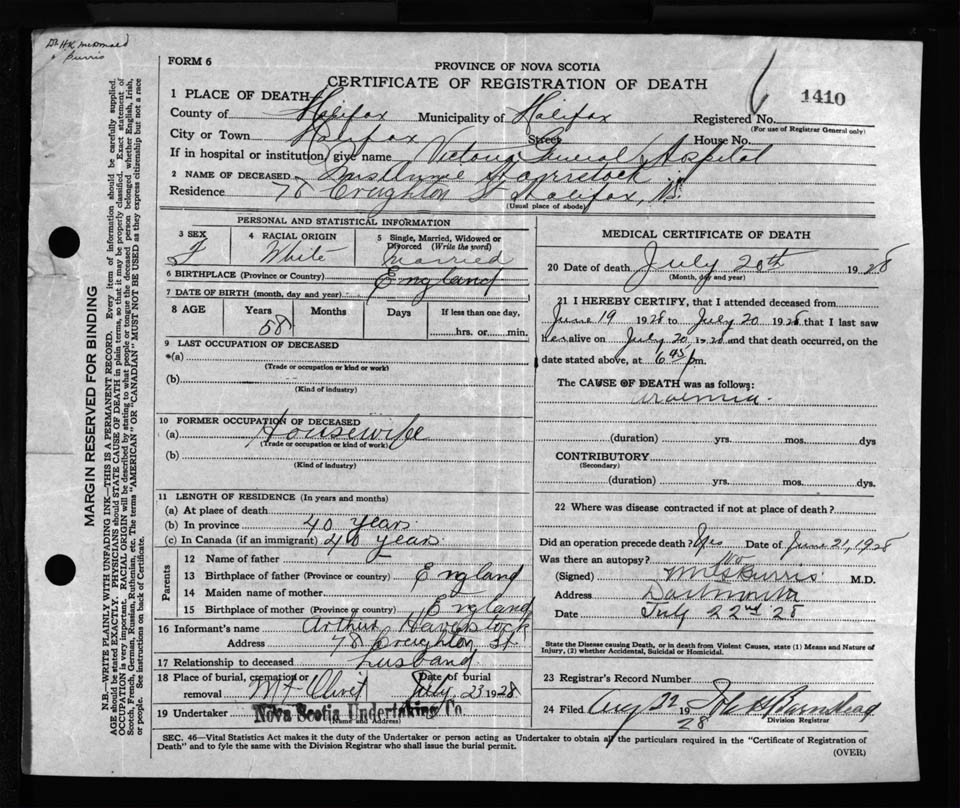 Dr H.K. McDonald
& Burris
FORM 6
PROVINCE OF NOVA SCOTIA
CERTIFICATE OF REGISTRATION OF DEATH
1410
1 PLACE OF DEATH
County of Halifax Municipality of Halifax Registered No.
(For use of Registrar General only)
City or Town Halifax Street House No.
If in hospital or institution, give name Victoria General Hospital
2 NAME OF DECEASED
Residence 78 Creighton St Halifax, N.S.
(Usual place of abode)
PERSONAL AND STATISTICAL INFORMATION
3 SEX F
4 RACIAL ORIGIN White
5 Single, Married, Widowed or Divorced (Write the word) Married
6 BIRTHPLACE (Province or Country) England
7 DATE OF BIRTH (month, day and year)
8 AGE Years Months Days If less than one day,
58 hrs. or min.
9 LAST OCCUPATION OF DECEASED
*(a)
(Trade or occupation or kind or work)
(b)
(Kind of industry)
10 FORMER OCCUPATION OF DECEASED
(a) Housewife
(Trade or occupation or kind of work)
(b)
(Kind of industry)
11 LENGTH OF RESIDENCE (In years and months)
(a) At place of death
(b) In province 40 years
(c) In Canada (if an immigrant) 40 years
Parents
12 Name of father
13 Birthplace of father (Province or country) England
14 Maiden name of mother
15 Birthplace of mother (Province or country) England
16 Informant's name Arthur Haverstock
Address 78 Creighton St.
17 Relationship to deceased husband
18 Place of burial, cremation or removal Mt Olivet Date of burial July 23 1928
19 Undertaker Nova Scotia Undertaking Co.
(Name and Address)
MEDICAL CERTIFICATE OF DEATH
20 Date of death July 20th 1928
(Month, day and year)
21 I HEREBY CERTIFY, that I attended deceased from
June 19 1928 to July 20 1928 that I last saw
her alive on July 20, 1928 and that death occurred, on the
date stated above, at 6 45 p.m.
The CAUSE OF DEATH was as follows:
Uraemia.
(duration) yrs. mos. dys
CONTRIBUTORY
(Secondary)
(duration) yrs. mos. dys.
22 Where was disease contracted if not at place of death?
Did an operation precede death? Yes Date of June 21, 1928
Was there an autopsy? No
(Signed) Burris M.D.
Address Dartmouth
Date July 22nd 28
State the Disease causing Death, or in death from Violent Causes, state (1) Means and Nature of
Injury, (2) whether Accidental, Suicidal or Homicidal.
23 Registrar's Record Number
24 Filed Aug 22 1928
Division Registrar
SEC. 46—Vital Statistics Act makes it the duty of the Undertaker or person acting as Undertaker to obtain all the particulars required in the "Certificate of Registration of
Death" and to fyle the same with the Division Registrar who shall issue the burial permit.
(OVER)
MARGIN RESERVED FOR BINDING
N.B.—WRITE PLAINLY WITH UNFADING INK—THIS IS A PERMANENT RECORD. Every item of information should be carefully supplied.
AGE should be stated EXACTLY. PHYSICIANS should STATE CAUSE OF DEATH in plain terms, so that it may be properly classified. Exact statement of
OCCUPATION is very important. RACIAL ORIGIN will be described by stating to what people or tongue the deceased person belonged whether English, Irish,
Scotch, French, German, Russian, Ruthenian, etc. The terms "AMERICAN" OR "CANADIAN" MUST NOT BE USED as they express citizenship but not a race
or people. See instructions on back of Certificate.